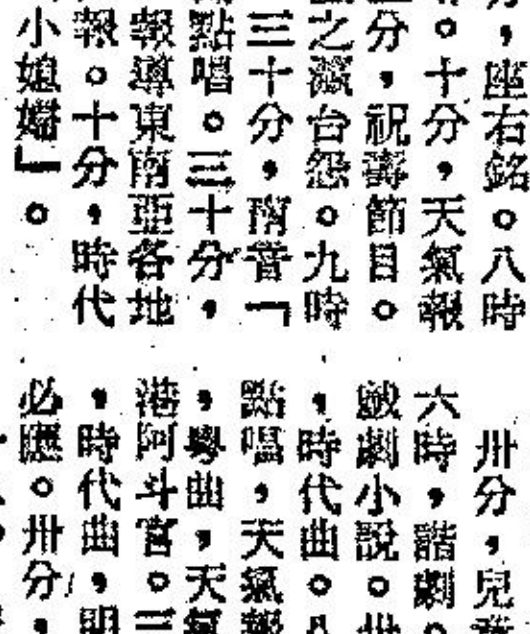 ，座右銘。八時
。十分，天氣報
分，祝壽節目。
之瀟台怨。九時
三十分，南音「
點唱。三十分，
報導東南亞各地
報。十分，時代
小媳嬸」。
卅分，兒
六時，諧劇
戲劇小說。卅
，時代曲。八
點唱，天氣報
，粵曲，天氣
港阿斗官。三
，時代曲，明
必應。卅分，